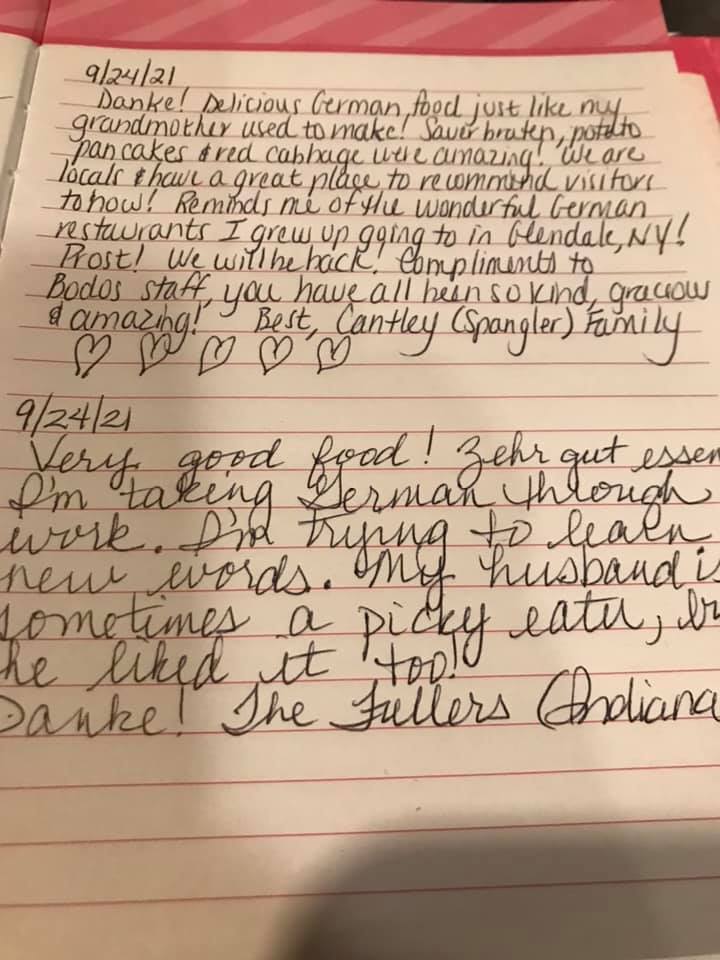 9/24/21
Danke! Delicious German food just like my
grandmother used to make! Sauerbraten, potato
pancakes & red cabbage were amazing! We are
locals & have a great place to recommend visitors
to now! Reminds me of the wonderful German
restaurants I grew up going to in Glendale, NY!
Prost! We will be back! Compliments to
Bodos staff, you have all been so kind, gracious
& amazing! Best, Cantley (Spangler) Family
9/24/21
Very good food! Zehr gut essen
I'm taking German through
work. I'm trying to learn
new words. My husband is
sometimes a picky eater,
he liked it too!
Danke! The Fullers (Indiana